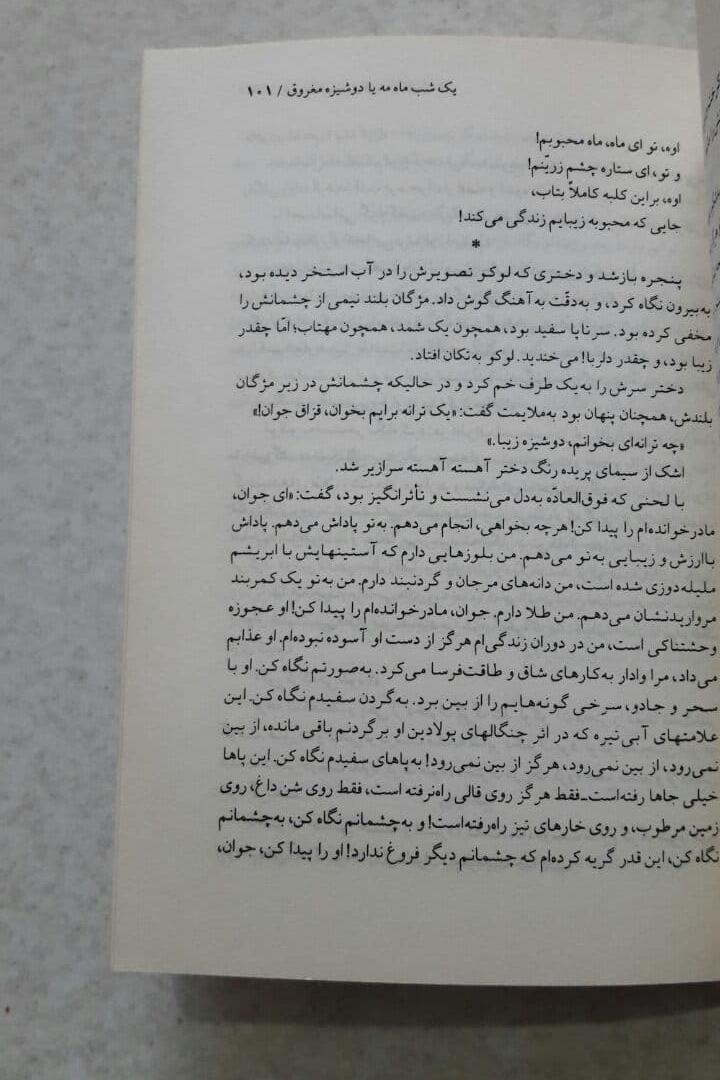 یک شب ماه مه یا دوشیزه مغروق / ۱۰۱
اوه، تو ای ماه، ماه محبوبم!
و تو، ای ستاره چشم زریّنم!
اوه، براین کلبه کاملاً بتاب،
جایی که محبوبه زیبایم زندگی می‌کند!
*
پنجره بازشد و دختری که لوکو تصویرش را در آب استخر دیده بود،
به‌بیرون نگاه کرد، و به‌دقّت به‌آهنگ گوش داد. مژگان بلند نیمی از چشمانش را
مخفی کرده بود. سرتاپا سفید بود، همچون یک شمد، همچون مهتاب؛ امّا چقدر
زیبا بود، و چقدر دلربا! می‌خندید. لوکو به‌تکان افتاد.
دختر سرش را به‌یک طرف خم کرد و در حالیکه چشمانش در زیر مژگان
بلندش، همچنان پنهان بود به‌ملایمت گفت: «یک ترانه برایم بخوان، قزاق جوان!»
«چه ترانه‌ای بخوانم، دوشیزه زیبا.»
اشک از سیمای پریده رنگ دختر آهسته آهسته سرازیر شد.
با لحنی که فوق‌العادّه به‌دل می‌نشست و تأثرانگیز بود، گفت: «ای جوان،
مادرخوانده‌ام را پیدا کن! هرچه بخواهی، انجام می‌دهم. به‌تو پاداش می‌دهم. پاداش
باارزش و زیبایی به‌تو می‌دهم. من بلوزهایی دارم که آستینهایش با ابریشم
ملیله‌دوزی شده است، من دانه‌های مرجان و گردنبند دارم. من به‌تو یک کمربند
مرواریدنشان می‌دهم. من طلا دارم. جوان، مادرخوانده‌ام را پیدا کن! او عجوزه
وحشتناکی است، من در دوران زندگی‌ام هرگز از دست او آسوده نبوده‌ام. او عذابم
می‌داد، مرا وادار به‌کارهای شاق و طاقت‌فرسا می‌کرد. به‌صورتم نگاه کن. او با
سحر و جادو، سرخی گونه‌هایم را از بین برد. به‌گردن سفیدم نگاه کن. این
علامتهای آبی‌تیره که در اثر چنگالهای پولادین او برگردنم باقی مانده، از بین
نمی‌رود، از بین نمی‌رود، هرگز از بین نمی‌رود! به‌پاهای سفیدم نگاه کن. این پاها
خیلی جاها رفته‌است ـ فقط هرگز روی قالی راه‌نرفته است، فقط روی شن داغ، روی
زمین مرطوب، و روی خارهای تیز راه‌رفته‌است! و به‌چشمانم نگاه کن، به‌چشمانم
نگاه کن، این قدر گریه کرده‌ام که چشمانم دیگر فروغ ندارد! او را پیدا کن، جوان،